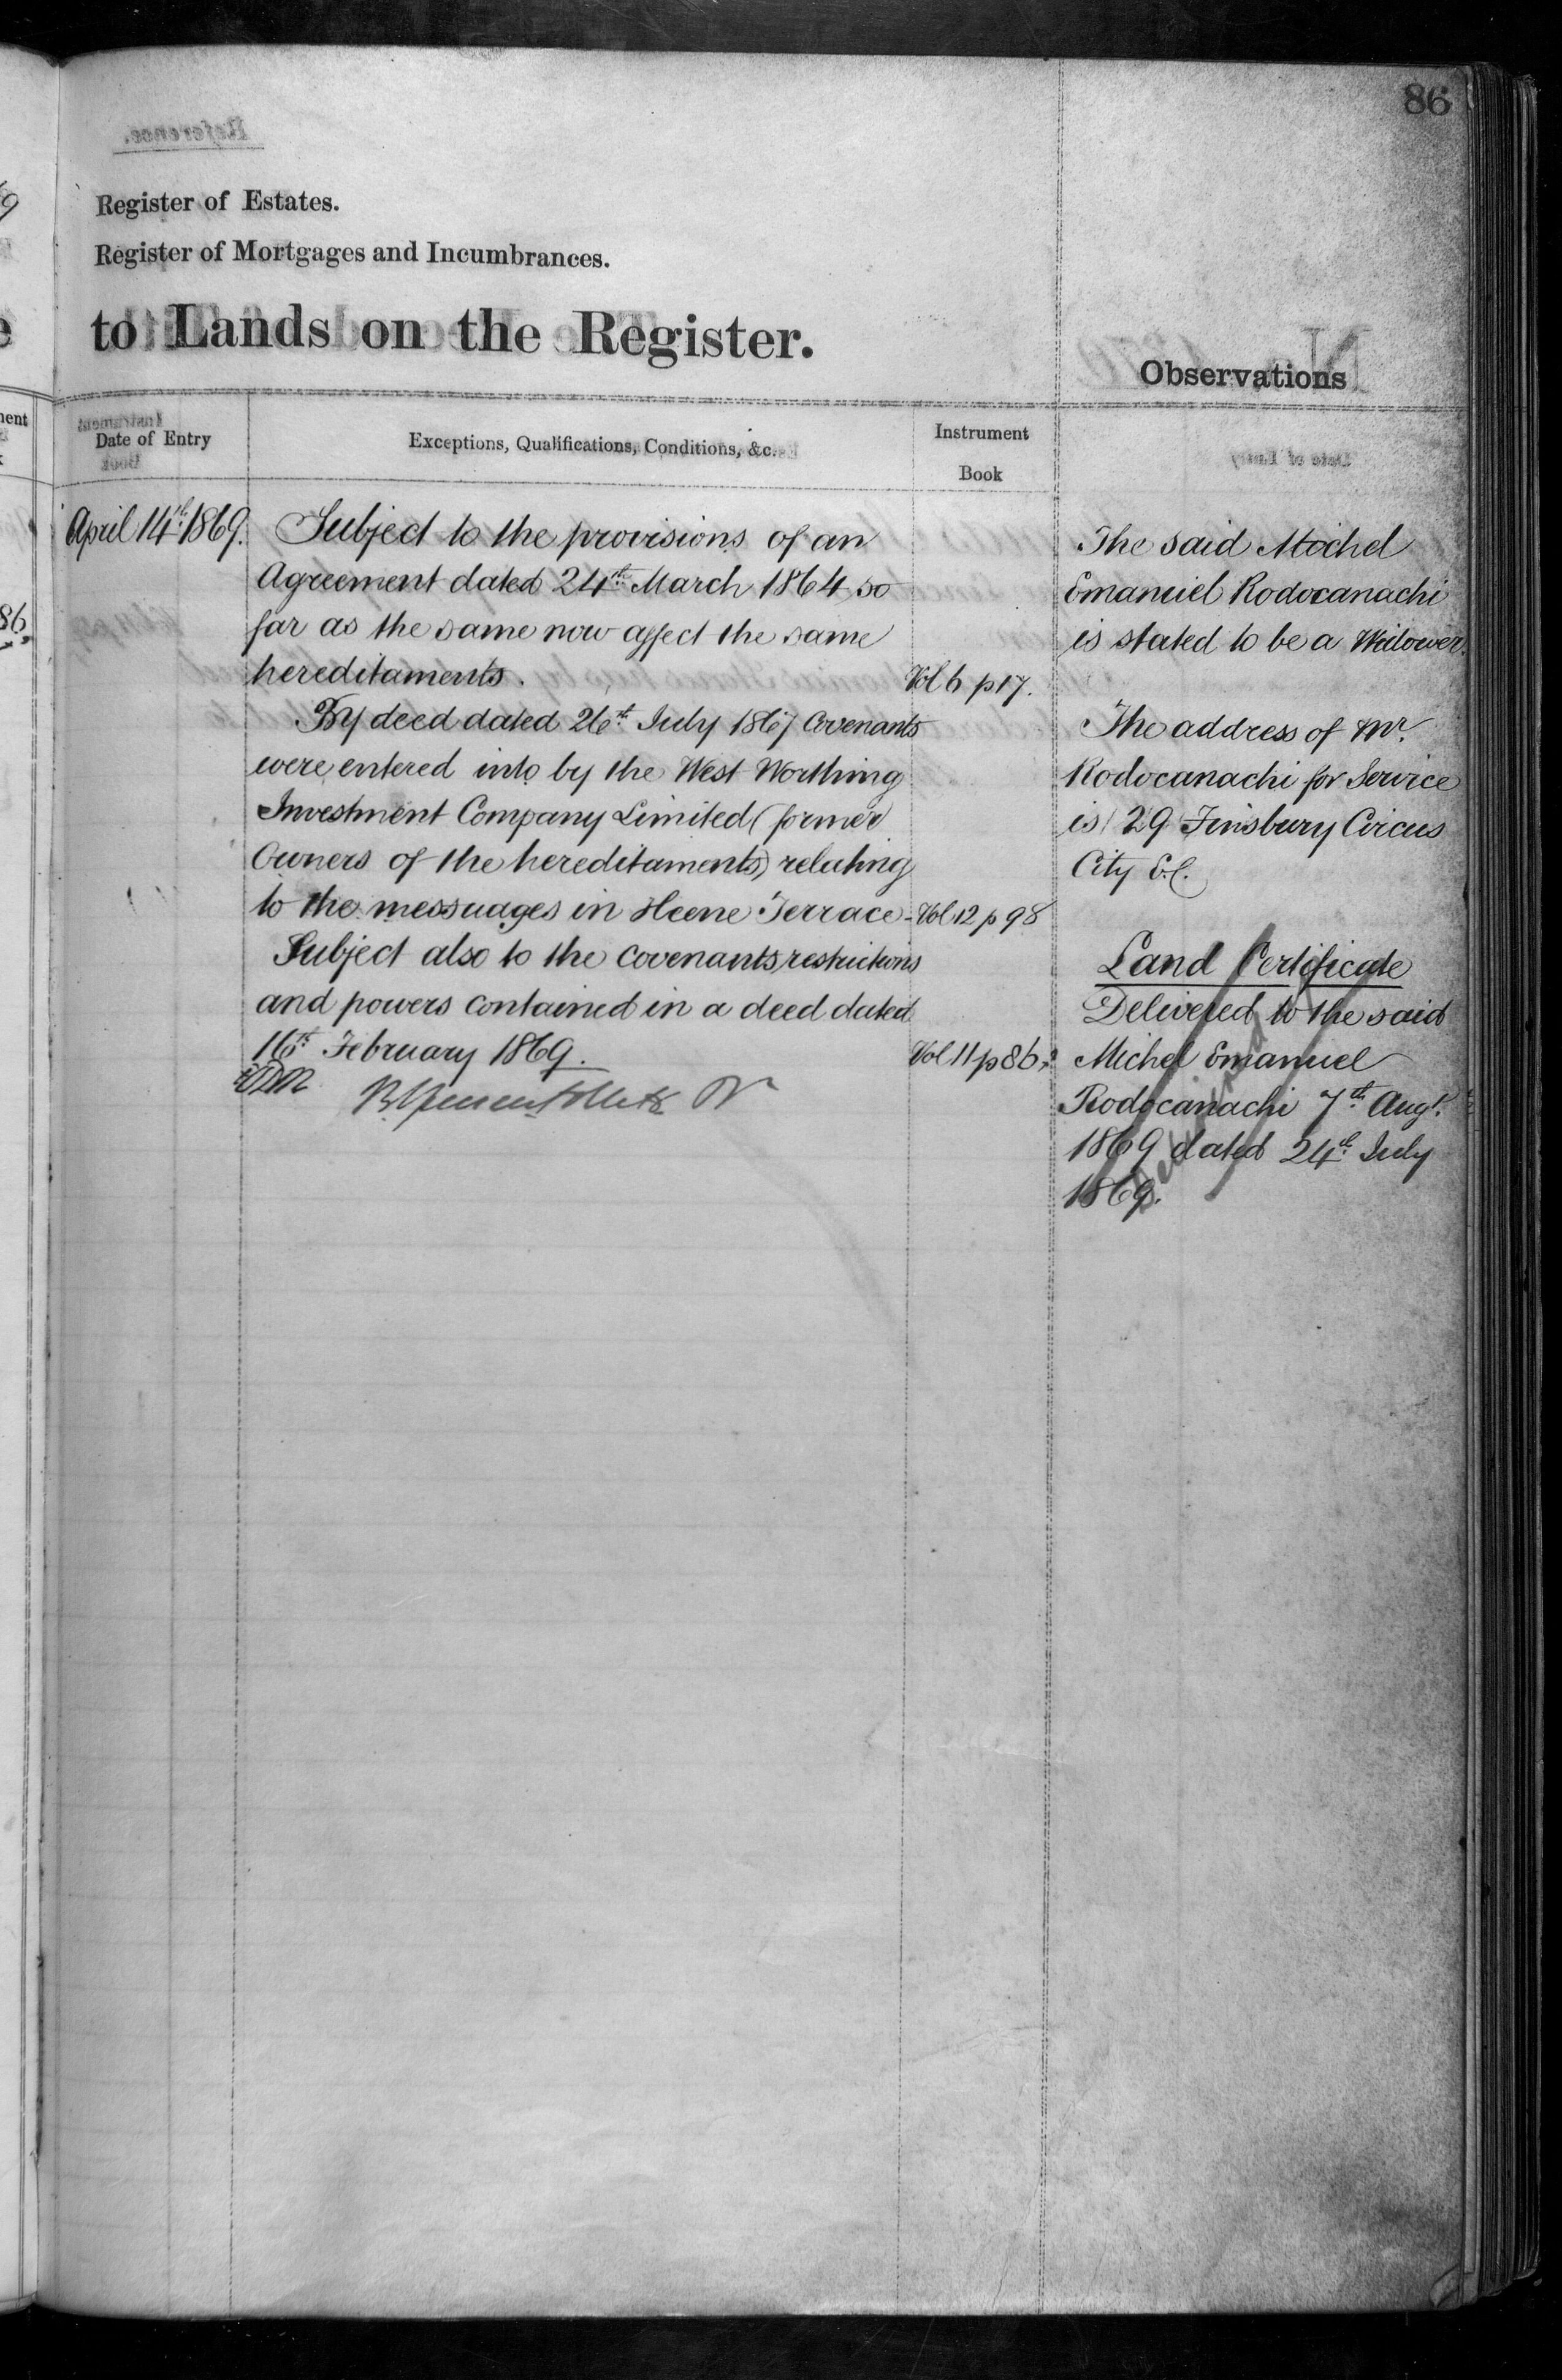 86
Register of Estates.
Register of Mortgages and Incumbrances.
to Lands on the Register.
Observations
Date of Entry
Exceptions, Qualifications, Conditions, &c.
Instrument
Book
April 14th 1869.
Subject to the provisions of an
Agreement dated 24th March 1864 so
far as the same now affect the same
hereditaments.
Vol 6 p 17.
By deed dated 26th July 1867 Covenants
were entered into by the West Worthing
Investment Company Limited (former
Owners of the hereditaments) relating
to the messuages in Heene Terrace -
Vol 12 p 98
Subject also to the covenants restrictions
and powers contained in a deed dated
16th February 1869.
Vol 11 p 86
The said Michel
Emanuel Rodocanachi
is stated to be a Widower.
The address of Mr.
Rodocanachi for Service
is 29 Finsbury Circus
City E.C.
Land Certificate
Delivered to the said
Michel Emanuel
Rodocanachi 7th Augt.
1869 dated 24th July
1869.